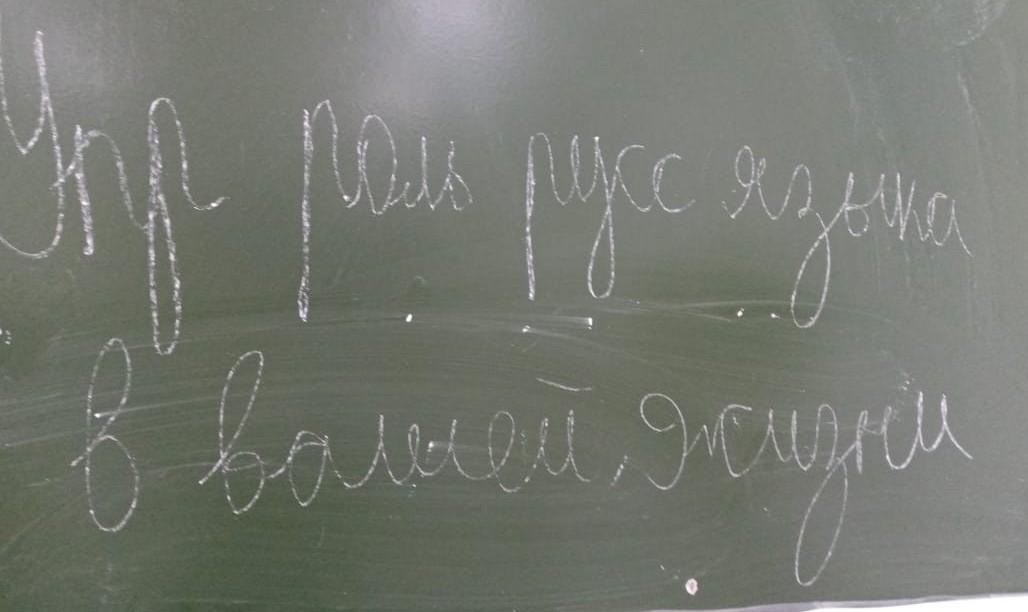 Упр роль русс языка
в вашей жизни